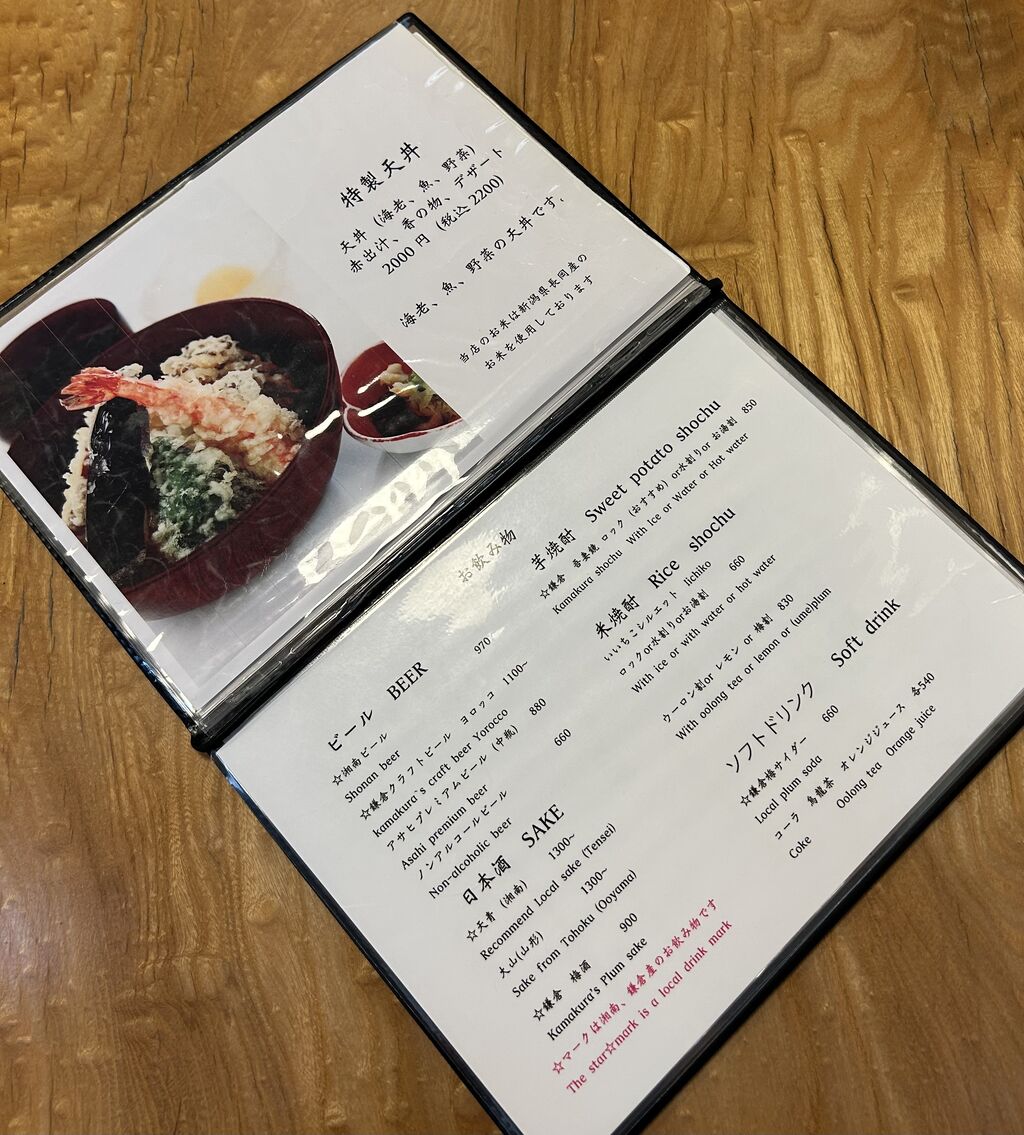 特製天丼
天丼 (海老、魚、野菜)
赤出汁、香の物、デザート
2000円 (税込2200)
海老、魚、野菜の天丼です。
当店のお米は新潟県長岡産の
お米を使用しております
お飲み物
ビール BEER
☆湘南ビール 970
Shonan beer
☆鎌倉クラフトビール ヨロッコ 1100~
kamakura`s craft beer Yorocco
アサヒプレミアムビール (中瓶) 880
Asahi premium beer
ノンアルコールビール 660
Non-alcoholic beer
日本酒 SAKE
☆天青 (湘南) 1300~
Recommend Local sake (Tensei)
大山(山形) 1300~
Sake from Tohoku (Ooyama)
☆鎌倉 梅酒 900
Kamakura's Plum sake
☆マークは湘南、鎌倉産のお飲み物です
The star☆mark is a local drink mark
芋焼酎 Sweet potato shochu
☆鎌倉 吾妻鏡 ロック (おすすめ) or水割りor お湯割 850
Kamakura shochu With Ice or Water or Hot water
米焼酎 Rice shochu
いいちこシルエット Iichiko 660
ロックor水割りorお湯割
With ice or with water or hot water
ウーロン割or レモン or 梅割 830
With oolong tea or lemon or (ume)plum
ソフトドリンク Soft drink
☆鎌倉梅サイダー 660
Local plum soda
コーラ 烏龍茶 オレンジジュース 各540
Coke Oolong tea Orange juice